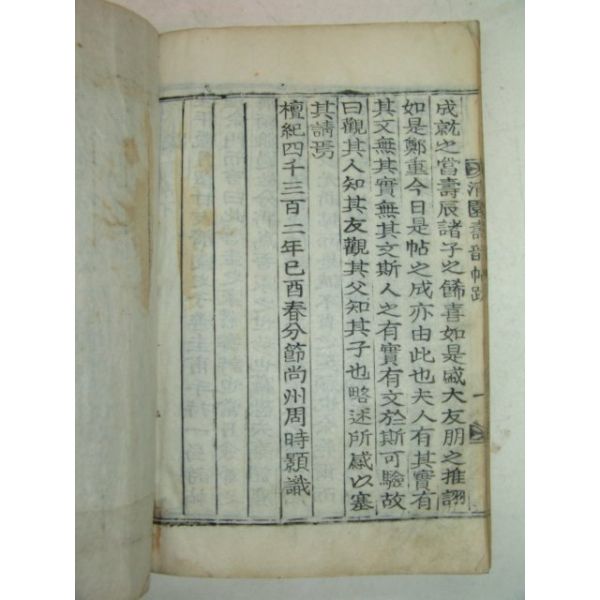 成就之當壽辰諸子之餙喜如是戚大友朋之推詡
如是鄭重今日是帖之成亦由此也夫人有其實有
其文無其實無其文斯人之有實有文於斯可驗故
曰觀其人知其友觀其父知其子也略述所感以塞
其請焉
檀紀四千三百二年己酉春分節尚州周時顯識
壽音帖跋
一